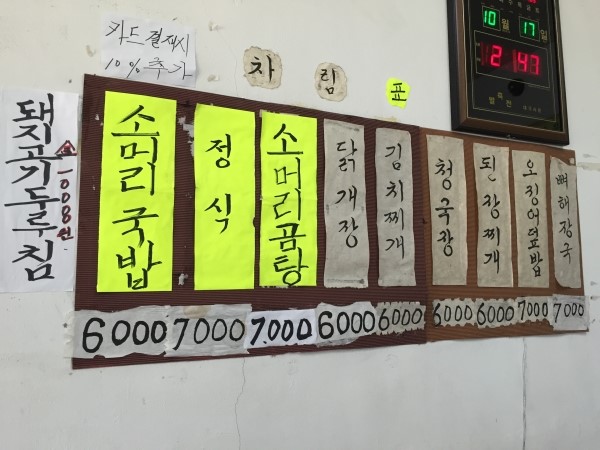 카드결제시
10% 추가
차림표
10월 17일
2 147
돼지고기두루침
소머리국밥
정식
소머리곰탕
닭개장
김치찌개
청국장
된장찌개
오징어덮밥
뼈해장국
6000
7000
7.000
6000
6000
6000
6000
7000
7000